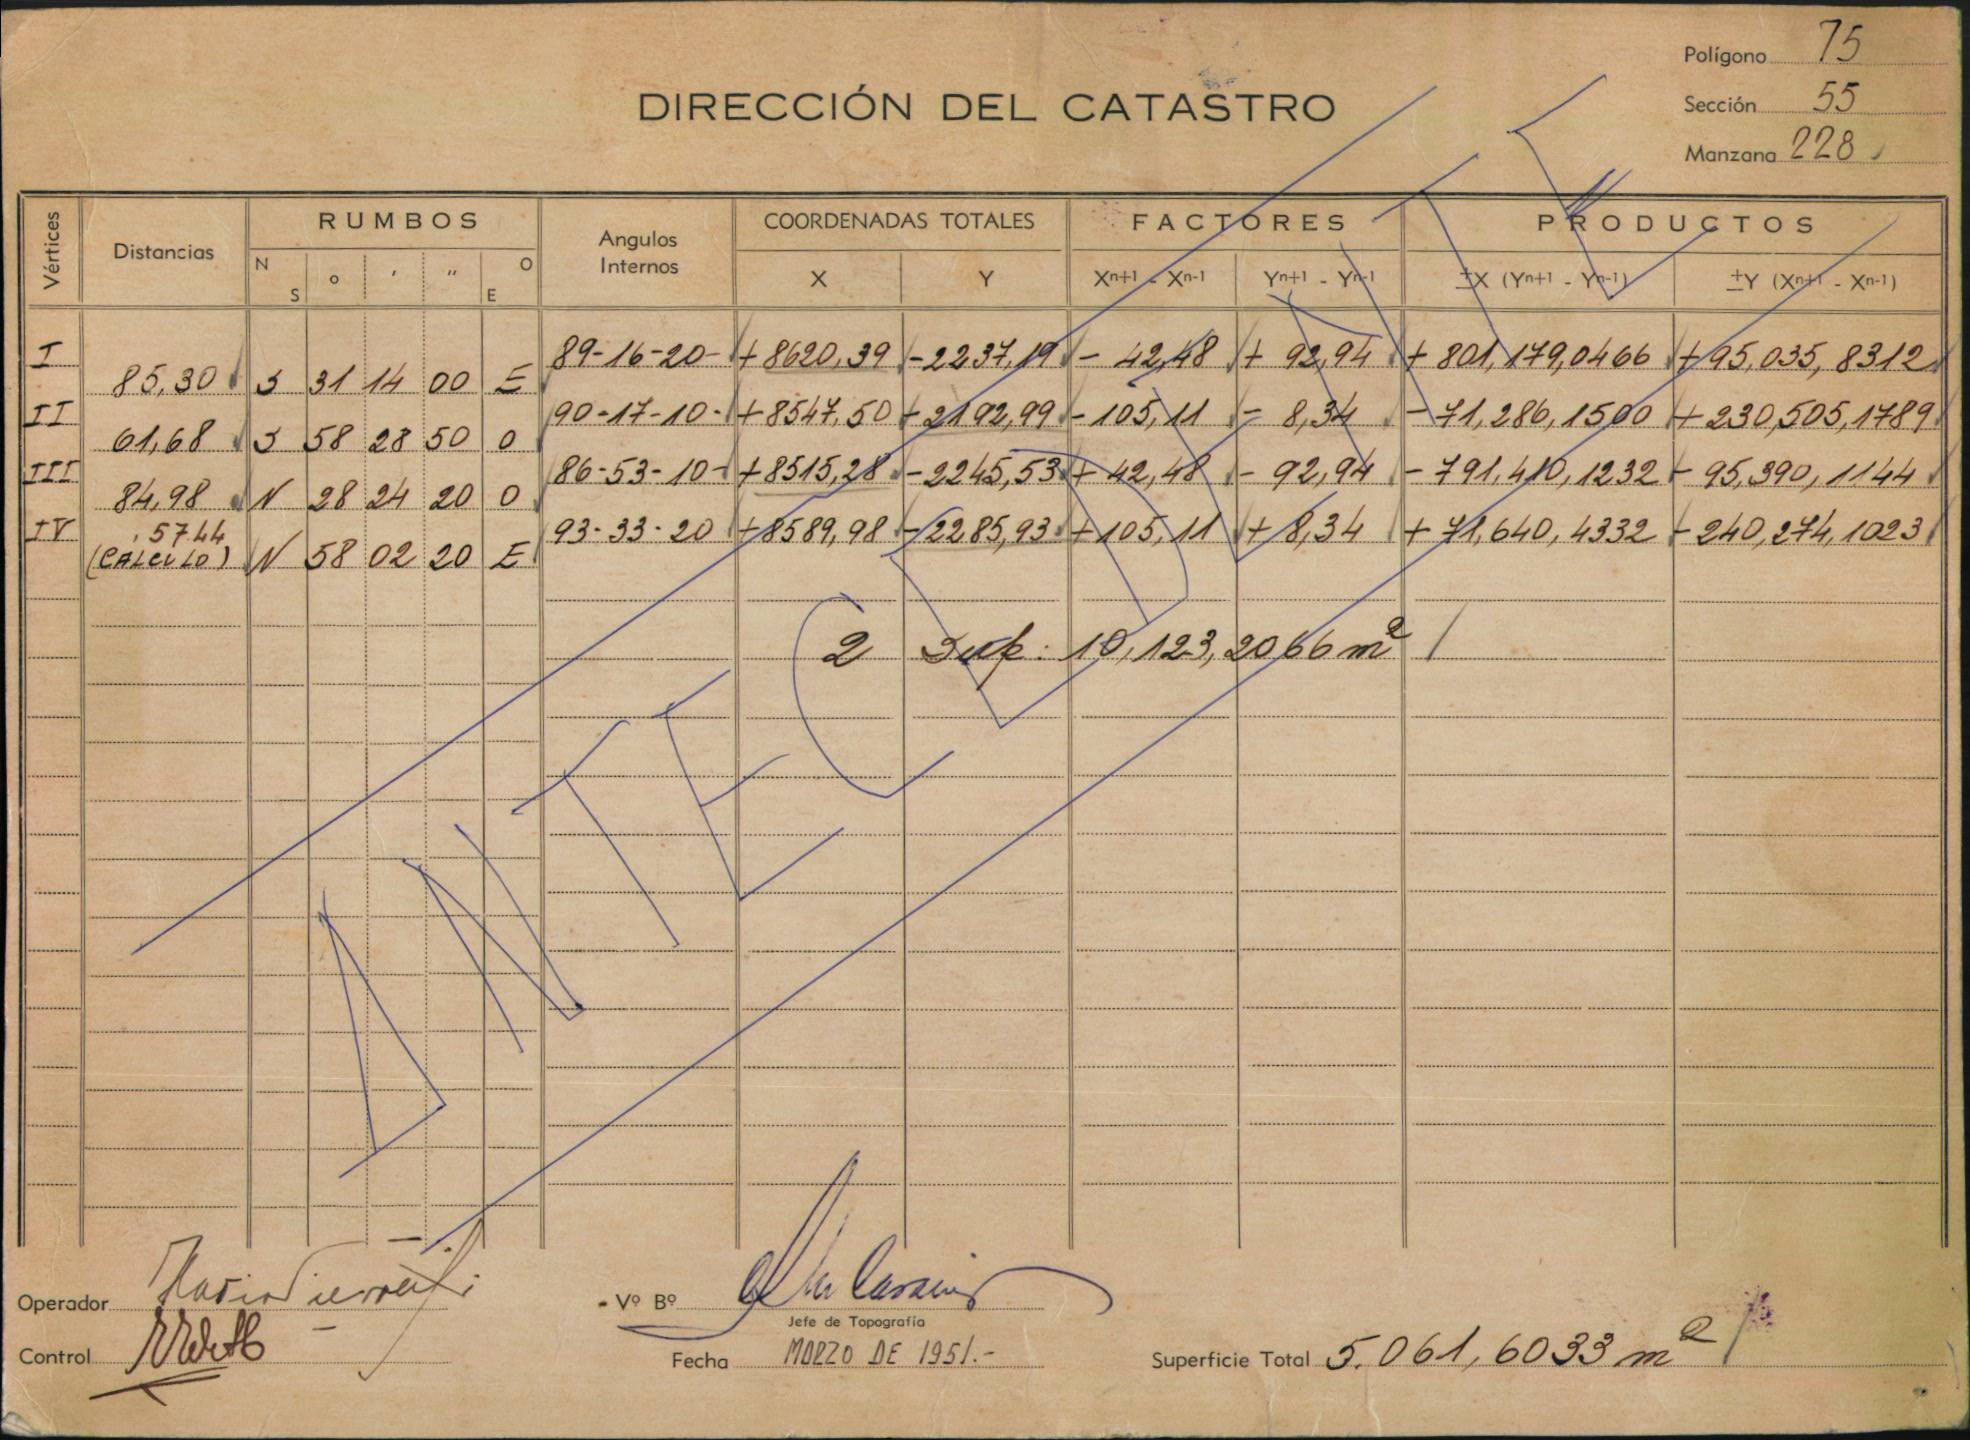 Polígono 75
DIRECCIÓN DEL CATASTRO
Sección 55
Manzana 228
Vértices
Distancias
RUMBOS
N S
o
'
"
O E
Angulos Internos
COORDENADAS TOTALES
X
Y
FACTORES
Xn+1 - Xn-1
Yn+1 - Yn-1
PRODUCTOS
±X (Yn+1 - Yn-1)
±Y (Xn+1 - Xn-1)
I 89-16-20- +8620,39 -2237,19 - 42,48 + 92,94 + 801,179,0466 + 95,035,8312
85,30 S 31 14 00 E
II 90-17-10- +8547,50 -2192,99 -105,11 - 8,34 - 71,286,1500 + 230,505,1789
61,68 S 58 28 50 O
III 86-53-10- +8515,28 -2245,53 + 42,48 - 92,94 - 791,410,1232 - 95,390,1144
84,98 N 28 24 20 O
IV 93-33-20 +8589,98 -2285,93 +105,11 + 8,34 + 71,640,4332 - 240,274,1023
5744
(CALCULO) N 58 02 20 E
2 Sup: 10,123,2066 m²
Operador
Vº Bº
Jefe de Topografía
Control
Fecha MARZO DE 1951.-
Superficie Total 5.061,6033 m²